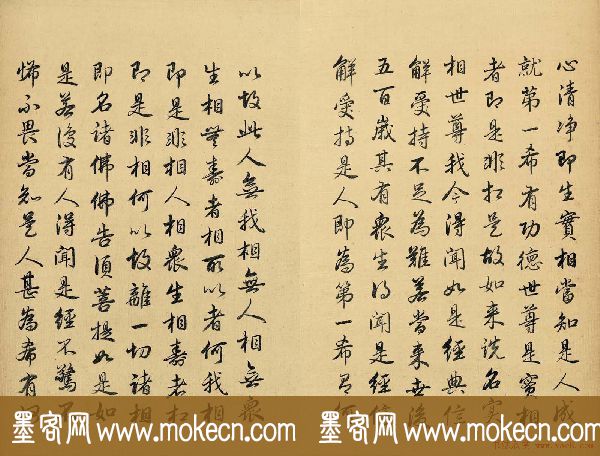 心清淨即生實相當知是人成
就第一希有功德世尊是實相
者即是非相是故如来説名實
相世尊我今得聞如是經典信
解受持不足為難若當来世後
五百歲其有衆生得聞是經信
解受持是人即為第一希有何
以故此人無我相無人相無衆
生相無壽者相所以者何我相
即是非相人相衆生相壽者相
即是非相何以故離一切諸相
即名諸佛佛告須菩提如是如
是若復有人得聞是經不驚不
怖不畏當知是人甚為希有
墨客网 www.mokecn.com 墨客网 www.mokecn.com